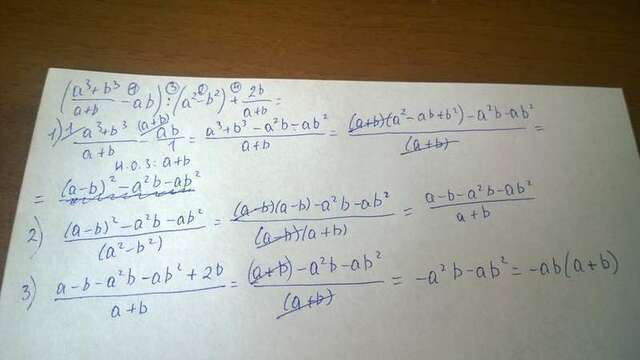 (a³+b³/a+b - ab) : (a²-b²) + 2b/a+b =
1) a³+b³/a+b - ab/1 = a³+b³-a²b-ab²/a+b = (a+b)(a²-ab+b²)-a²b-ab²/(a+b) =
Н.О.З: a+b
= (a-b)²-a²b-ab²
2) (a-b)²-a²b-ab²/(a²-b²) = (a-b)(a-b)-a²b-ab²/(a-b)(a+b) = a-b-a²b-ab²/a+b
3) a-b-a²b-ab²+2b/a+b = (a+b)-a²b-ab²/(a+b) = -a²b-ab² = -ab(a+b)